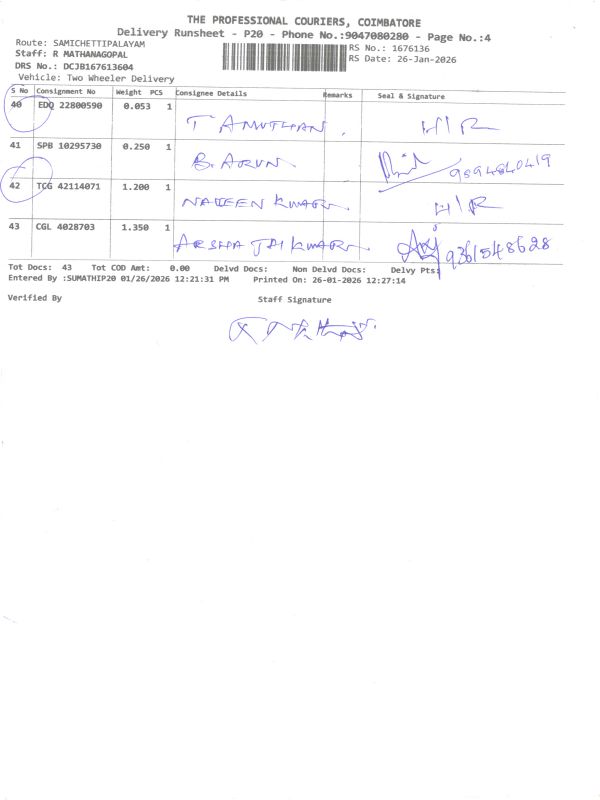 THE PROFESSIONAL COURIERS, COIMBATORE
Delivery Runsheet - P20 - Phone No.:9047080280 - Page No.:4
Route: SAMICHETTIPALAYAM
Staff: R MATHANAGOPAL
DRS No.: DCJB167613604
Vehicle: Two Wheeler Delivery
RS No.: 1676136
RS Date: 26-Jan-2026
S No Consignment No Weight PCS Consignee Details Remarks Seal & Signature
40 EDQ 22800590 0.053 1 T AMUTHAN. H/R
41 SPB 10295730 0.250 1 B. ARUN
42 TCG 42114071 1.200 1 NAVEEN KUMAR H/R
43 CGL 4028703 1.350 1 JAI KUMAR 9361548628
Tot Docs: 43 Tot COD Amt: 0.00 Delvd Docs: Non Delvd Docs: Delvy Pts:
Entered By :SUMATHIP20 01/26/2026 12:21:31 PM Printed On: 26-01-2026 12:27:14
Verified By Staff Signature